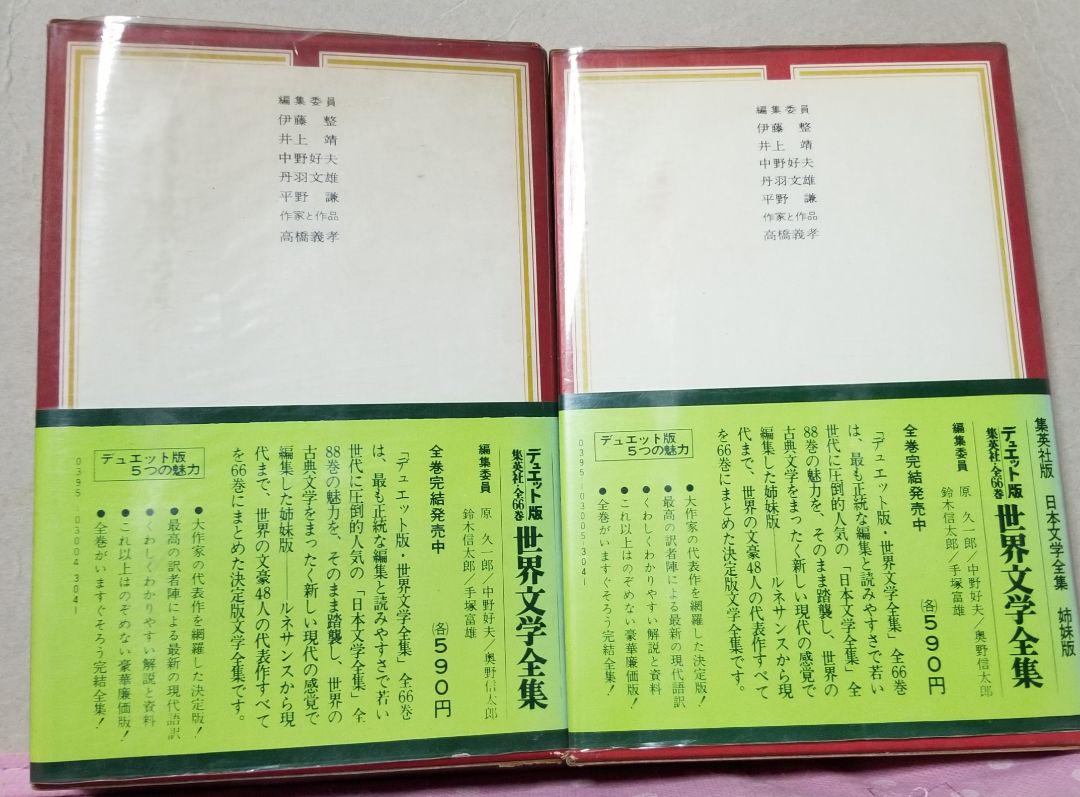 編集委員
伊藤 整
井上 靖
中野好夫
丹羽文雄
平野 謙
作家と作品
高橋義孝
デュエット版
集英社・全66巻
世界文学全集
編集委員 原 久一郎/中野好夫/奥野信太郎
鈴木信太郎/手塚富雄
全巻完結発売中
(各)590円
「デュエット版・世界文学全集」全66巻
は、最も正統な編集と読みやすさで若い
世代に圧倒的人気の「日本文学全集」全
88巻の魅力を、そのまま踏襲し、世界の
古典文学をまったく新しい現代の感覚で
編集した姉妹版——ルネサンスから現
代まで、世界の文豪48人の代表作すべて
を66巻にまとめた決定版文学全集です。
デュエット版
5つの魅力
●大作家の代表作を網羅した決定版!
●最高の訳者陣による最新の現代語訳
●くわしくわかりやすい解説と資料
●これ以上はのぞめない豪華廉価版!
●全巻がいますぐそろう完結全集!
0395-03004-3041
編集委員
伊藤 整
井上 靖
中野好夫
丹羽文雄
平野 謙
作家と作品
高橋義孝
集英社版 日本文学全集 姉妹版
デュエット版
集英社・全66巻
世界文学全集
編集委員 原 久一郎/中野好夫/奥野信太郎
鈴木信太郎/手塚富雄
全巻完結発売中
(各)590円
「デュエット版・世界文学全集」全66巻
は、最も正統な編集と読みやすさで若い
世代に圧倒的人気の「日本文学全集」全
88巻の魅力を、そのまま踏襲し、世界の
古典文学をまったく新しい現代の感覚で
編集した姉妹版——ルネサンスから現
代まで、世界の文豪48人の代表作すべて
を66巻にまとめた決定版文学全集です。
デュエット版
5つの魅力
●大作家の代表作を網羅した決定版!
●最高の訳者陣による最新の現代語訳
●くわしくわかりやすい解説と資料
●これ以上はのぞめない豪華廉価版!
●全巻がいますぐそろう完結全集!
0395-03005-3041